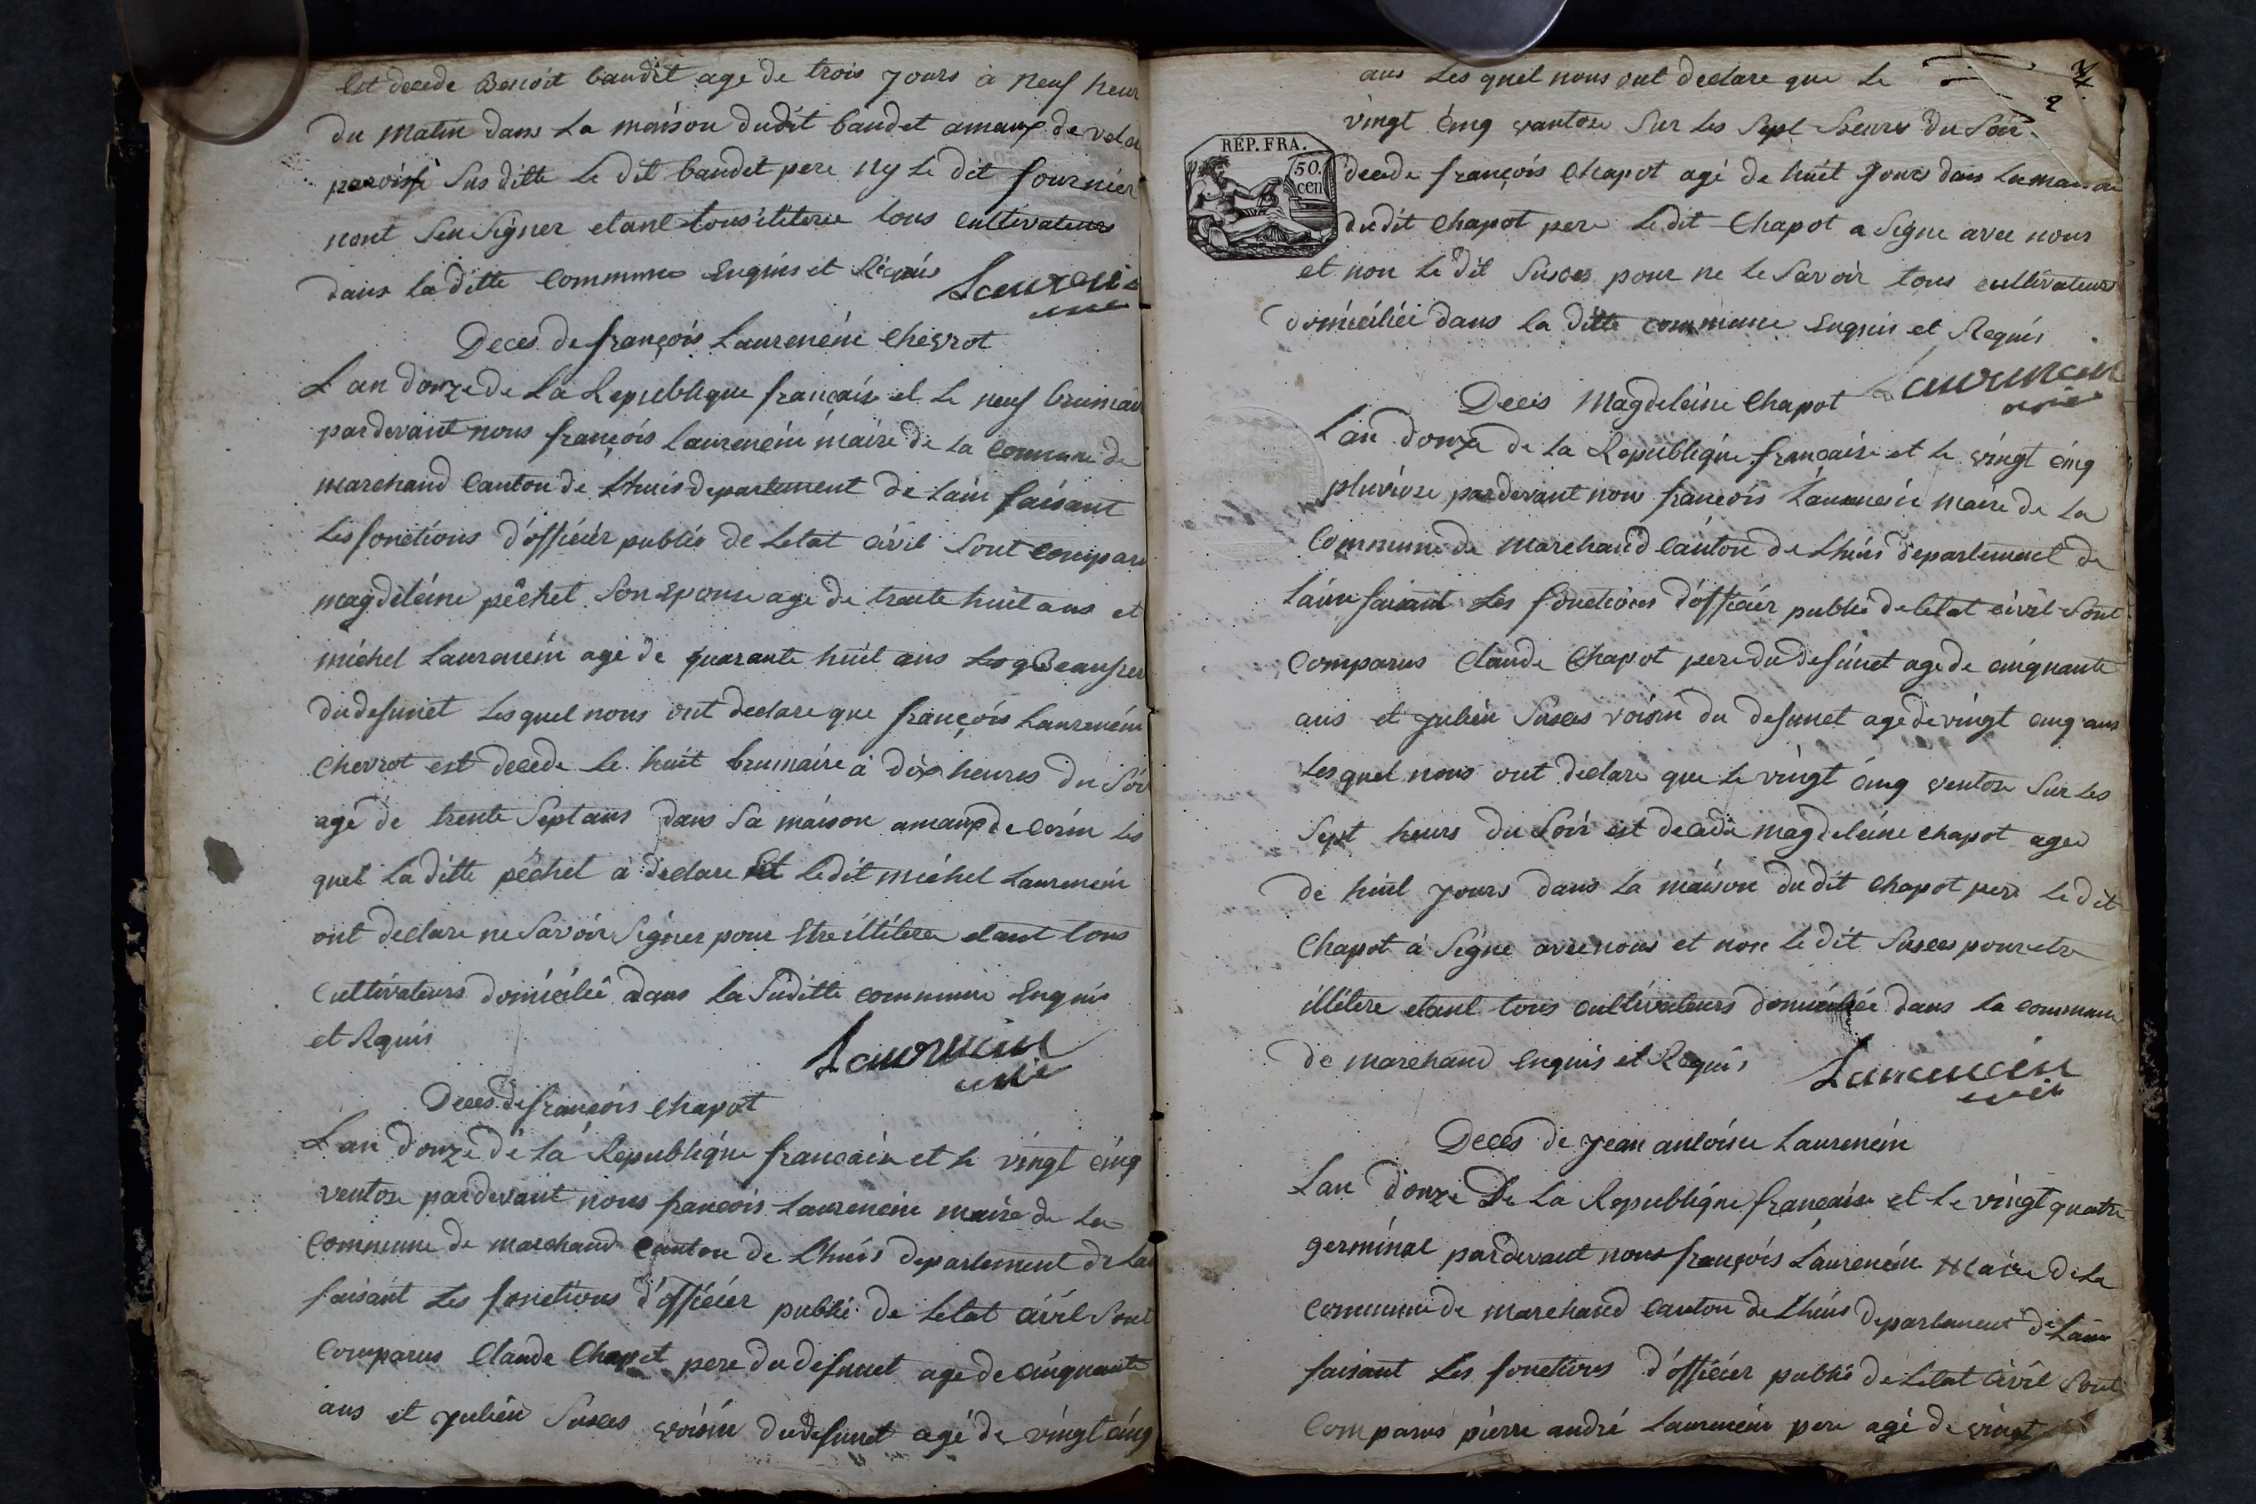 Est decede Benoit baudit age de trois jours à neuf heur
du matin dans la maison dudit baudet amaux de velo
paroisse susditte le dit baudet pere ny le dit fournier
nont seu signer etant tous iliterée tous cultivateurs
dans la ditte commune Enquis et Requis Laurencin
maire
Deces de françois Laurencin Chevrot
L'an douze de La Republique française et le neuf brumair
pardevant nous françois Laurencin maire de la Commune de
marchand Canton de Lhuis departement de Lain faisant
Les fonctions d'officiér public de Letat civil sont compar
magdeleine pêchet son Epouse age de trente huit ans et
michel Laurencin agé de quarante huit ans Beaufrer
du defunct Lesquel nous ont declare que françois Laurencin
Chevrot est decede le huit brumaire à dix heures du soi
age de trente Sept ans dans sa maison amaux de cerin les
quel la ditte pêchet a declare et ledit michel Laurencin
ont declare ne savoir signer pour Etre illitere etant tous
Cultivateurs domicilié dans la suditte commune Enquis
et Requis
Laurencin
maire
Deces de françois Chapot
L'an douze de la Republique francaise et le vingt cinq
ventose pardevant nous francois Laurencin maire de la
Commune de marchand Canton de Lhuis departement de Lai
faisant Les fonctions d'officier public de Letat civil sont
Comparus Claude Chapot pere du defunct age de cinquante
ans et julien Suses voisin du defunct agé de vingt cinq
ans Lesquel nous ont declare que le
vingt cinq vantose sur les sept heures du soir
REP. FRA.
50.
cen
décede françois Chapot agé de huit jours dans la maison
dudit Chapot pere Ledit Chapot a signe avec nous
et non le dit Suses pour ne le savoir tous cultivateurs
domiciliéé dans la ditte commune Enquis et Requis
Laurencin
maire
Deces Magdeleine Chapot
L'an douze de la Republique francaise et le vingt cinq
pluviose pardevant nous françois Laurencin maire de la
Commune de marchand Canton de Lhuis departement de
Lain faisant les fonctions d'officiér public de letat civil sont
Comparus Claude Chapot pere du defunct age de cinquante
ans et julien Suses voisin du defunct age de vingt cinq ans
Lesquel nous ont declare que le vingt cinq ventose sur les
sept heurs du soir est decede magdeleine chapot agee
de huit jours dans la maison du dit Chapot pere le dit
Chapot à signe avec nous et non le dit Suses pour etre
illitere etant tous cultivateurs domiciliée dans la commune
de marchand Enquis et Requis
Laurencin
maire
Deces de jean antoine Laurencin
L'an douze De La Republique française et le vingt quatre
germinal pardevant nous françois Laurencin Maire de la
Commune de marchand Canton de Lhuis departement de Lain
faisant Les fonctions d'officiér public de Letat civil sont
Comparus pierre andré Laurencin pere agé de vingt